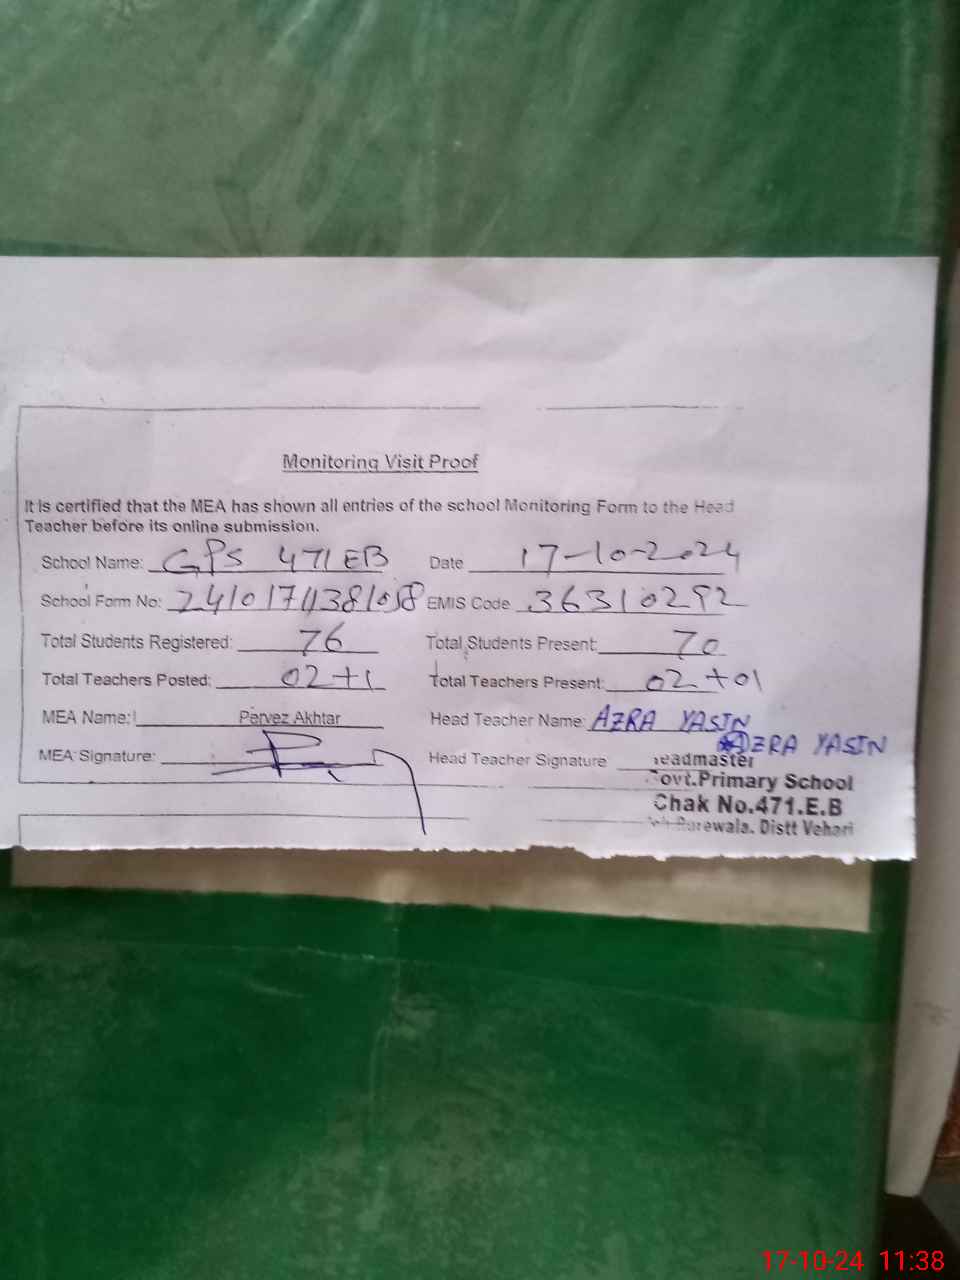 Monitoring Visit Proof
It is certified that the MEA has shown all entries of the school Monitoring Form to the Head
Teacher before its online submission.
School Name: GPS 471 EB Date 17-10-2024
School Form No: EMIS Code 36310292
Total Students Registered: 76 Total Students Present: 70
Total Teachers Posted: 02+1 Total Teachers Present: 02+01
MEA Name: Pervez Akhtar Head Teacher Name: AZRA YASIN
AZRA YASIN
MEA Signature: Head Teacher Signature
Headmaster
Govt.Primary School
Chak No.471.E.B
Burewala. Distt Vehari
17-10-24 11:38